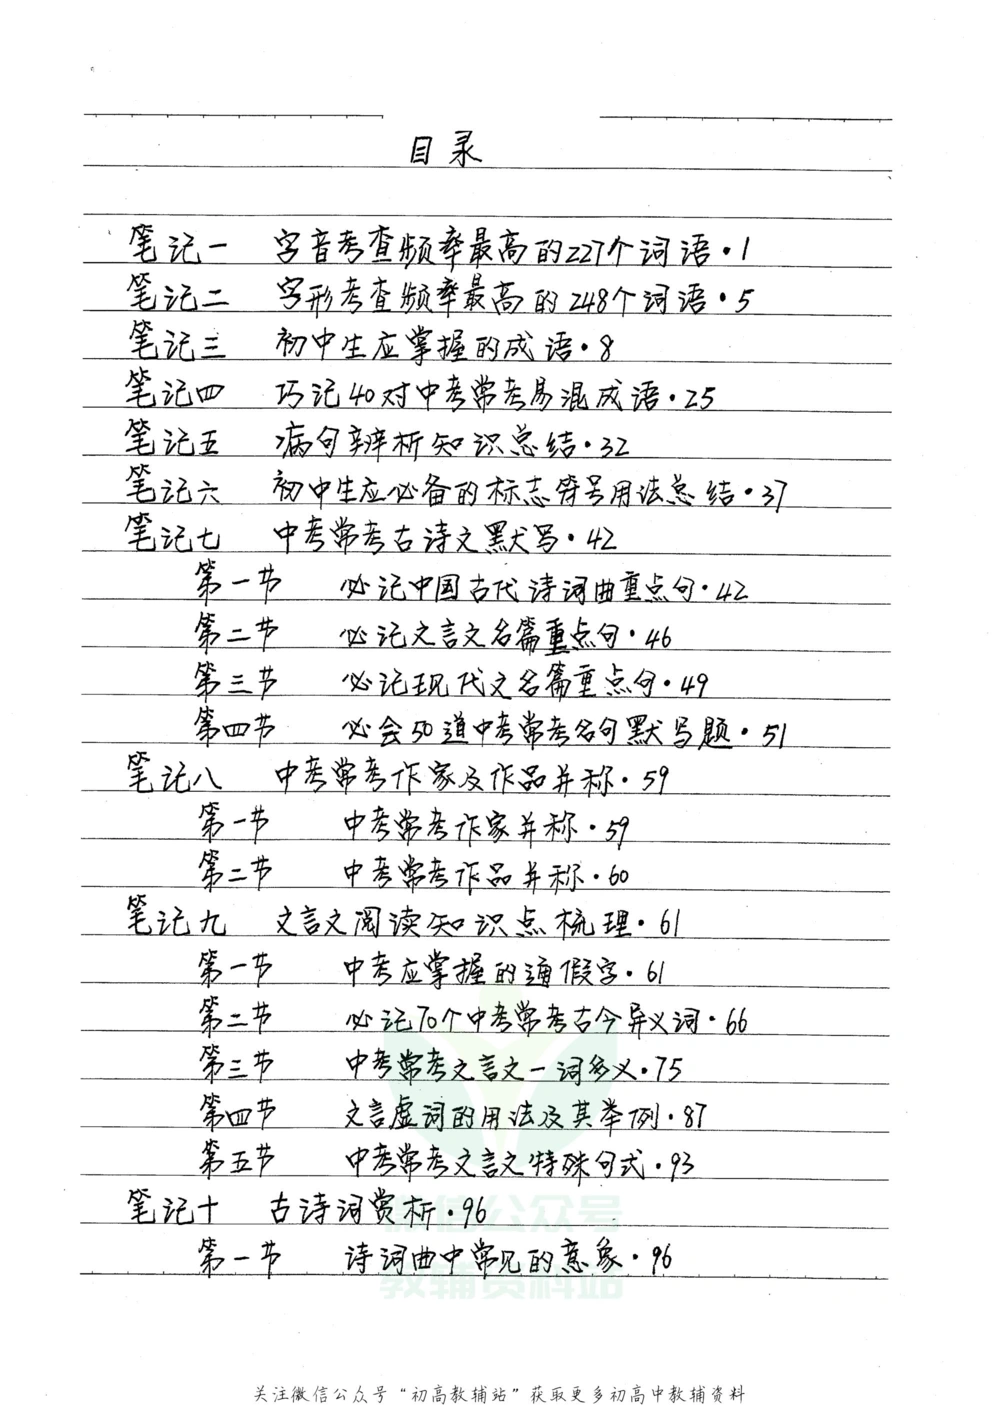 目录
笔记一 字音考查频率最高的227个词语·1
笔记二 字形考查频率最高的248个词语·5
笔记三 初中生应掌握的成语·8
笔记四 巧记40对中考常考易混成语·25
笔记五 病句辨析知识总结·32
笔记六 初中生应必备的标志符号用法总结·37
笔记七 中考常考古诗文默写·42
第一节 必记中国古代诗词曲重点句·42
第二节 必记文言文名篇重点句·46
第三节 必记现代文名篇重点句·49
第四节 必会50道中考常考名句默写题·51
笔记八 中考常考作家及作品并称·59
第一节 中考常考作家并称·59
第二节 中考常考作品并称·60
笔记九 文言文阅读知识点梳理·61
第一节 中考应掌握的通假字·61
第二节 必记70个中考常考古今异义词·66
第三节 中考常考文言文一词多义·75
第四节 文言虚词的用法及其举例·87
第五节 中考常考文言文特殊句式·93
笔记十 古诗词赏析·96
第一节 诗词曲中常见的意象·96
微信公众号
教辅资料站
关注微信公众号“初高教辅站”获取更多初高中教辅资料